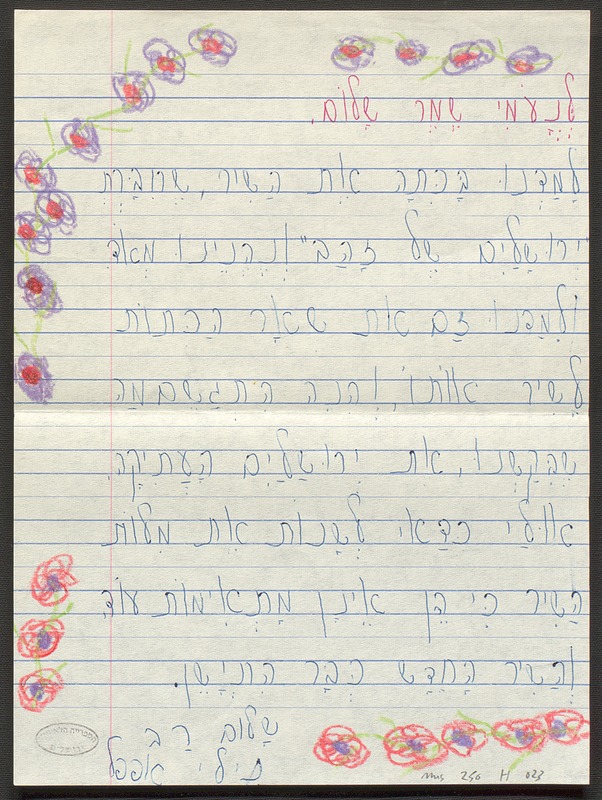 לְנָעֳמִי שֶׁמֶר שָׁלוֹם.
לָמַדְנוּ בַּכִּתָּה אֶת הַשִּׁיר, שֶׁחִבַּרְתְּ
"יְרוּשָׁלַיִם שֶׁל זָהָב" וְנֶהֱנֵינוּ מְאֹד
וְלִמַּדְנוּ גַם אֶת שְׁאָר הַכִּתּוֹת
לָשִׁיר אוֹתוֹ, וְהִנֵּה הִתְגַּשֵּׁם מַה
שֶׁבִּקַּשְׁנוּ, אֶת יְרוּשָׁלַיִם הָעַתִּיקָה.
אוּלַי כְּדַאי לְשַׁנּוֹת אֶת מִלּוֹת
הַשִּׁיר כִּי הֵן אֵינָן מַתְאִימוֹת עוֹד
וְהַשִּׁיר הֶחָדָשׁ כְּבָר הִתְיַשֵּׁן.
שָׁלוֹם רַב
צילי אפפל
mus 250 H 023